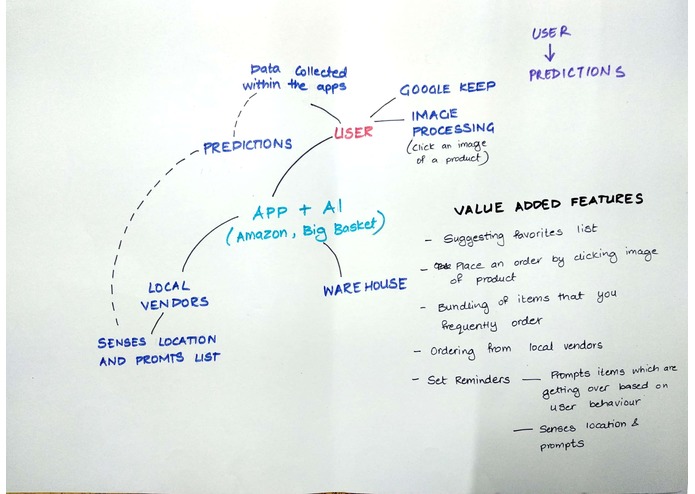 USER
PREDICTIONS
Data collected
within the apps
GOOGLE KEEP
IMAGE
PROCESSING
(Click an image
of a product)
USER
PREDICTIONS
APP + AI
(Amazon, Big Basket)
LOCAL
VENDORS
WAREHOUSE
SENSES LOCATION
AND PROMTS LIST
VALUE ADDED FEATURES
- Suggesting favorites list
- Place an order by clicking image
of product
- Bundling of items that you
frequently order
- Ordering from local vendors
- Set Reminders — Prompts items which are
getting over based on
user behaviour
— Senses location &
prompts